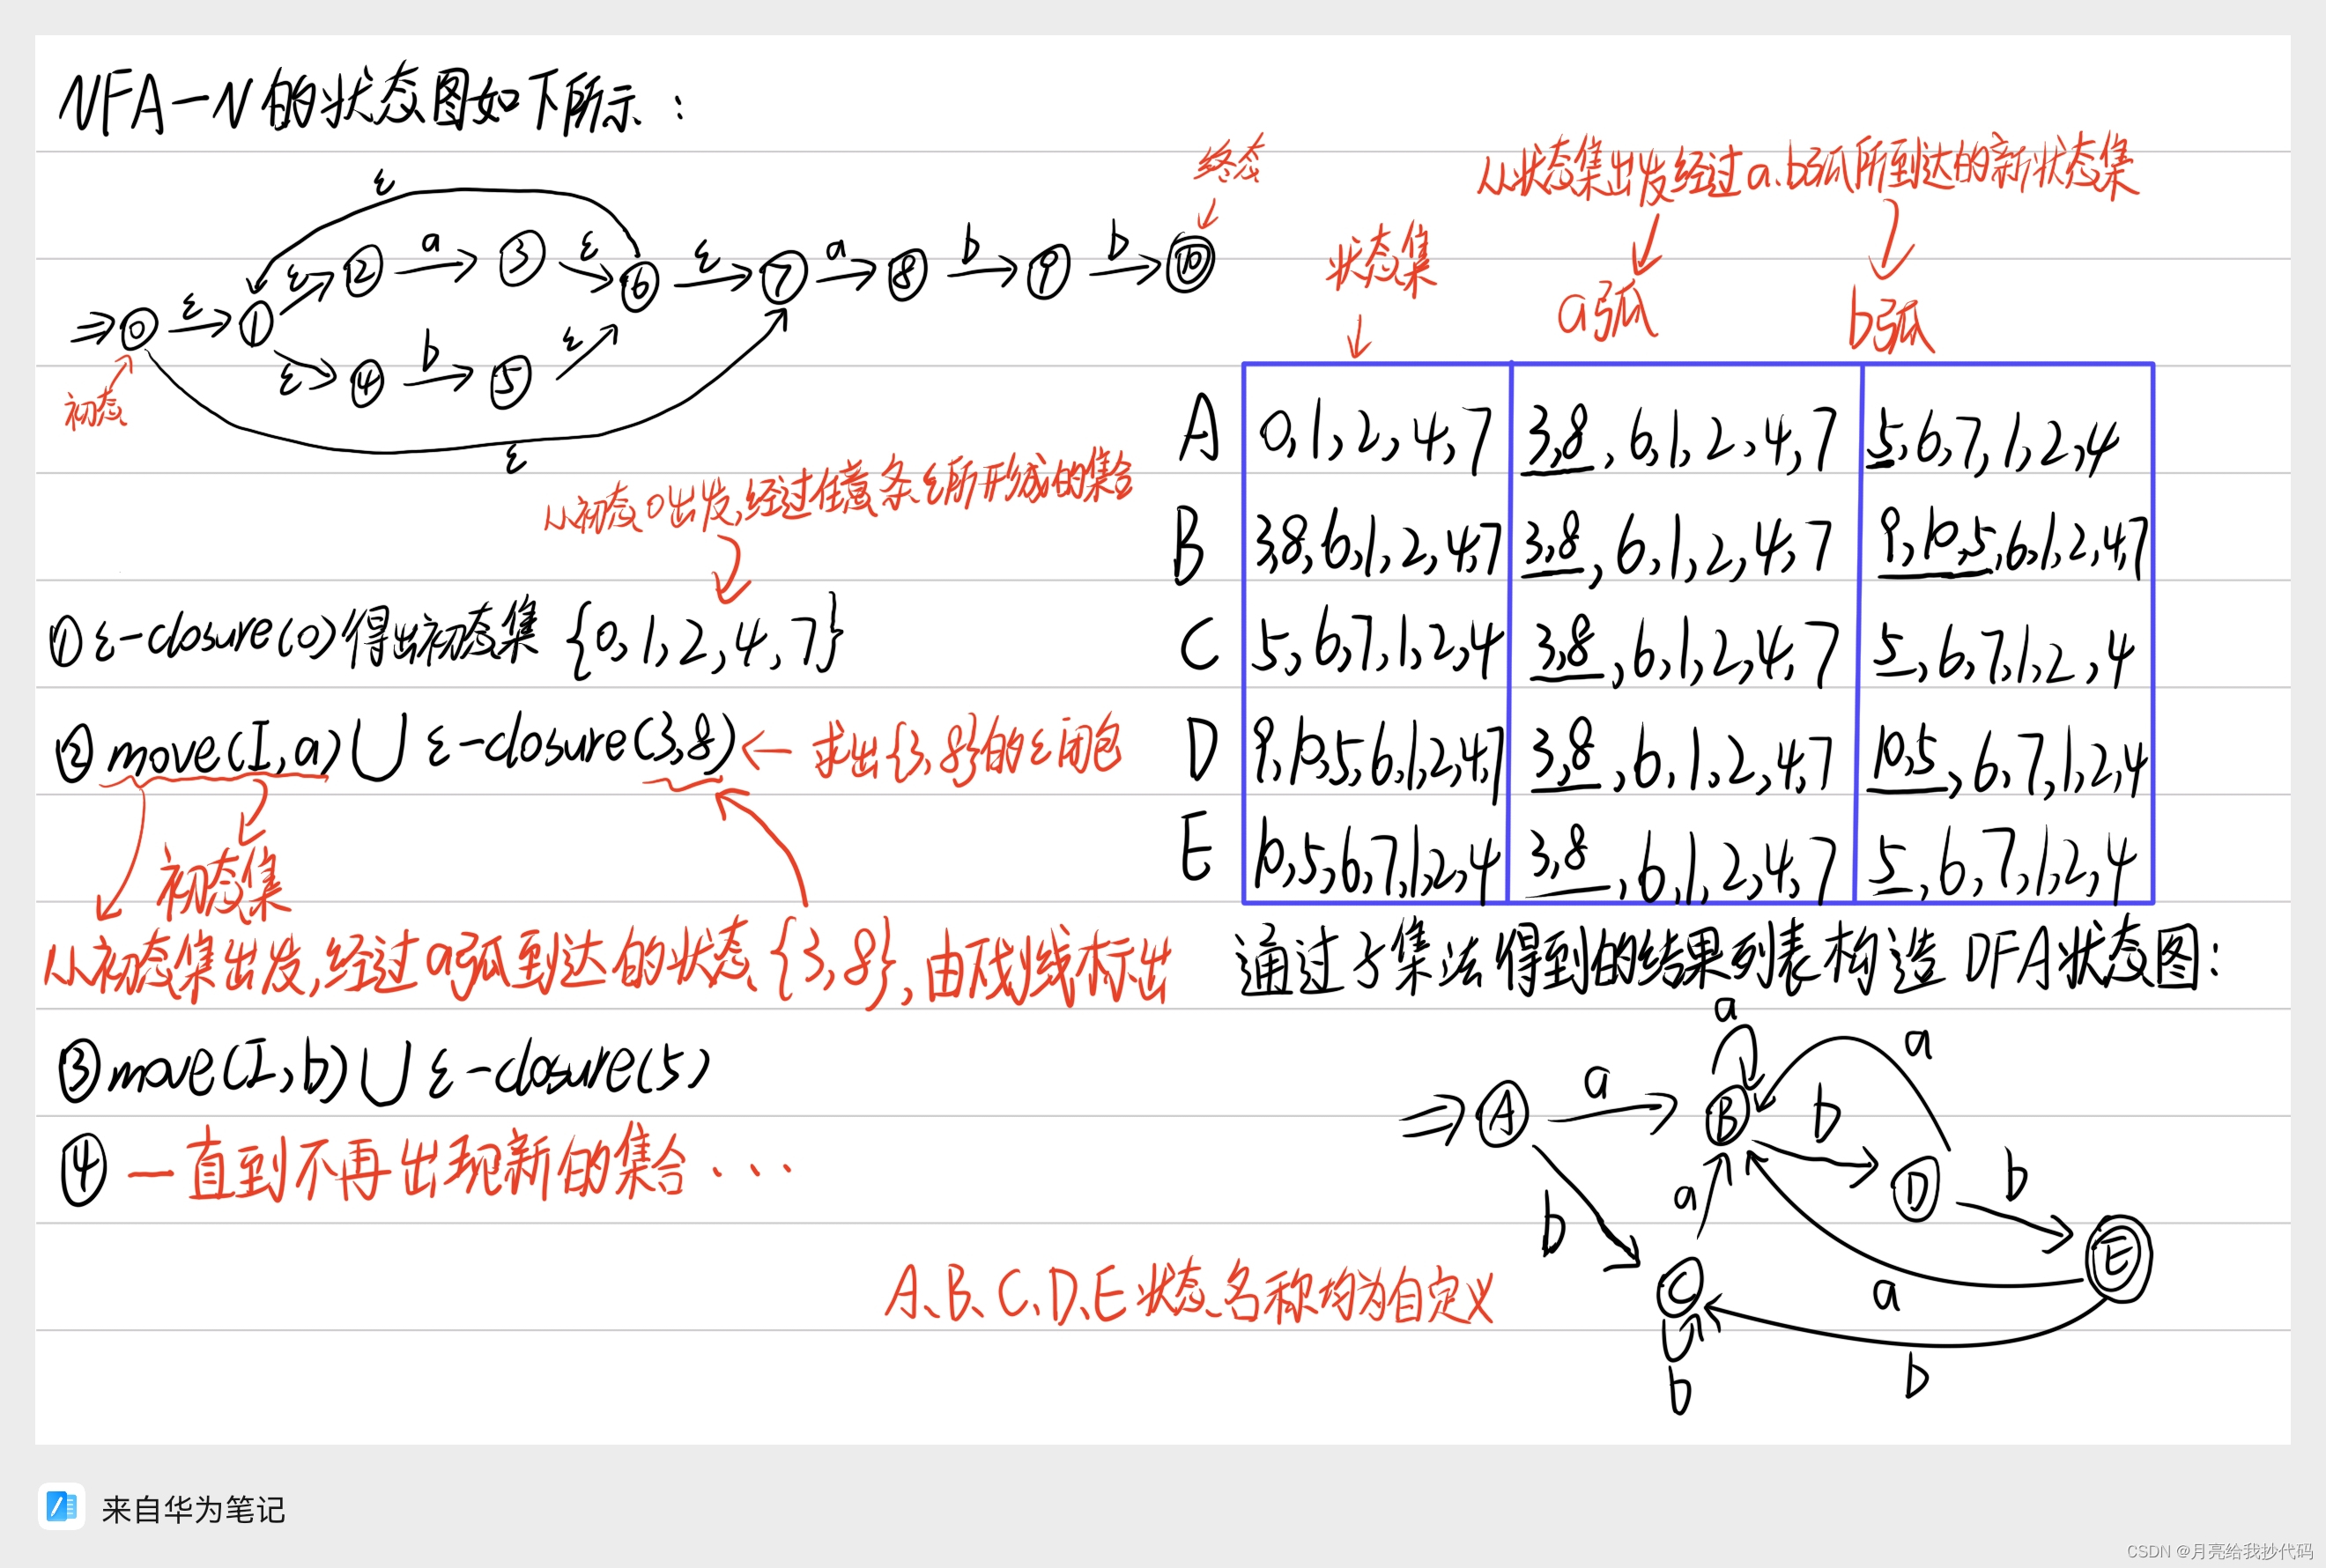 NFA-N的状态图如下所示：
终态
从状态集出发经过a、b弧所到达的新状态集
状态集
a弧
b弧
ε
ε
ε
a
ε
ε
a
b
b
0
1
2
3
6
7
8
9
10
ε
b
ε
4
5
初态
ε
从初态0出发,经过任意条ε所形成的集合
A 0,1,2,4,7 3,8,6,1,2,4,7 5,6,7,1,2,4
B 3,8,6,1,2,4,7 3,8,6,1,2,4,7 9,10,5,6,1,2,4,7
C 5,6,7,1,2,4 3,8,6,1,2,4,7 5,6,7,1,2,4
D 9,10,5,6,1,2,4,7 3,8,6,1,2,4,7 10,5,6,7,1,2,4
E 10,5,6,7,1,2,4 3,8,6,1,2,4,7 5,6,7,1,2,4
①ε-closure(0)得出初态集 {0,1,2,4,7}
②move(I,a)∪ε-closure(3,8)← 求出{3,8}的ε闭包
初态集
从初态集出发,经过a弧到达的状态{3,8},由战线标出
③move(I,b)∪ε-closure(5)
④一直到不再出现新的集合...
通过子集法得到的结果列表构造DFA状态图：
a
a
a
b
b
a
b
a
b
b
A
B
C
D
E
A、B、C、D、E状态名称均为自定义
来自华为笔记
CSDN @月亮给我抄代码